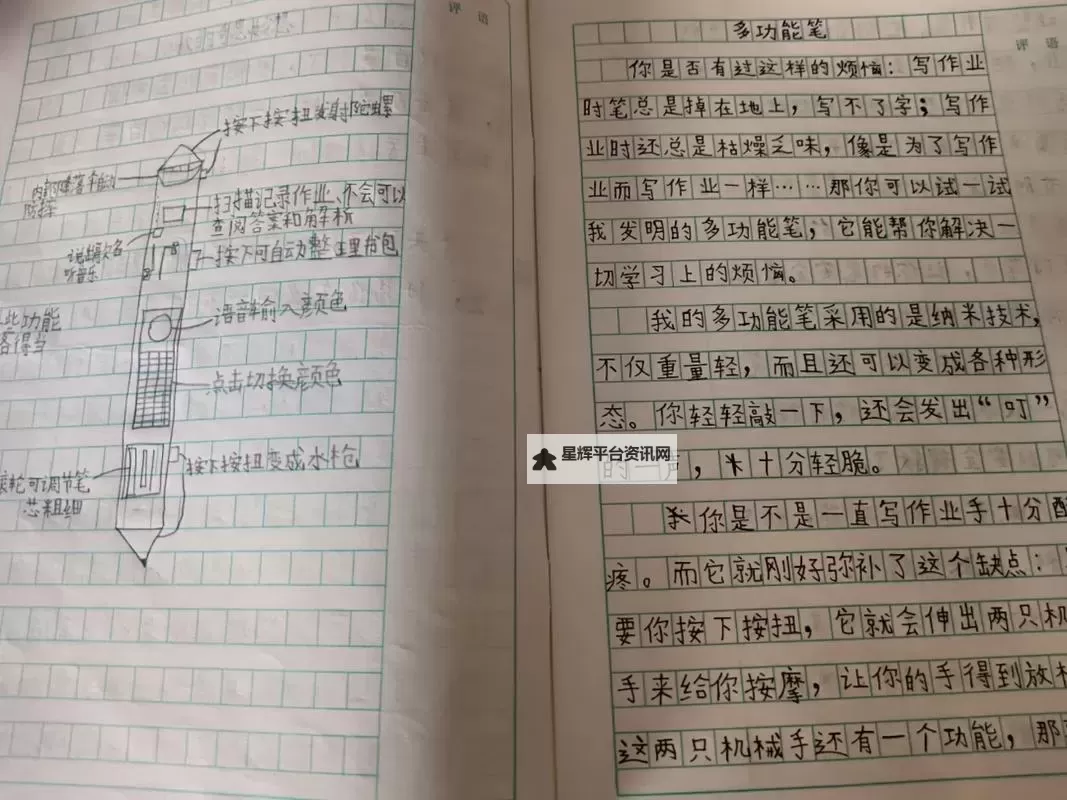 评 语
按下按扭发射陀螺
内部降落伞自动
防摔
扫描记录作业、不会可以
查阅答案和解析
说出歌名
听音乐
按下可自动整理书包
此功能
各得当
语音输入颜色
点击切换颜色
按下按扭变成水枪
滚轮可调节笔
芯粗细
多功能笔
评 语
你是否有过这样的烦恼：写作业
时笔总是掉在地上，写不了字；写作
业时还总是枯燥乏味，像是为了写作
业而写作业一样……那你可以试一试
我发明的多功能笔，它能帮你解决一
切学习上的烦恼。
我的多功能笔采用的是纳米技术，
不仅重量轻，而且还可以变成各种形
态。你轻轻敲一下，还会发出“叮”
的一声，十分轻脆。
星辉平台资讯网
你是不是一直写作业手十分酸
疼。而它就刚好弥补了这个缺点：
要你按下按扭，它就会伸出两只机
手来给你按摩，让你的手得到放松
这两只机械手还有一个功能，那